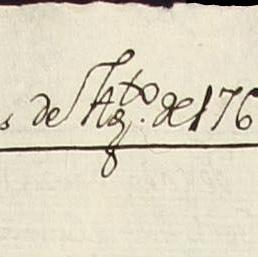 s de Agto. de 176